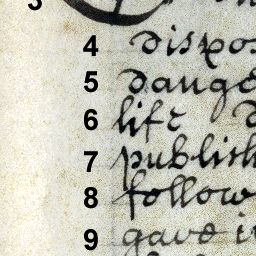 3
4 dispos
5 dange
6 life d
7 publish
8 follow
9 gave i